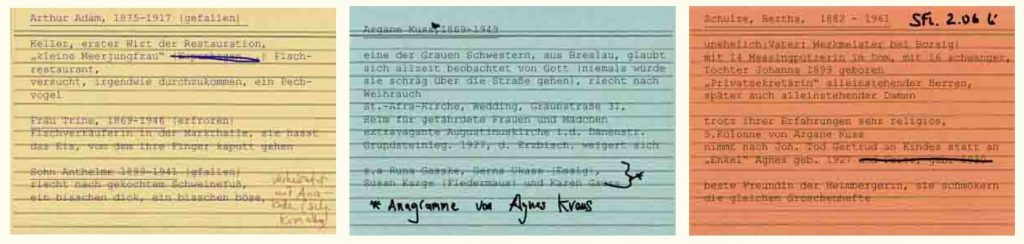 Arthur Adam, 1875-1917 |gefallen|
Keller, erster Wirt der Restauration,
„kleine Meerjungfrau“ |Kopenhagen | Fisch-
restaurant,
versucht, irgendwie durchzukommen, ein Pech-
vogel
Frau Trine, 1869-1946 |erfroren|
Fischverkäuferin in der Markthalle, sie hasst
das Eis, von dem ihre Finger kaputt gehen
Sohn Anthelme 1899-1941 |gefallen|
riecht nach gekochtem Schweinefuß,
ein bisschen dick, ein bisschen böse,
Argane Kuss,*1869-1949
eine der Grauen Schwestern, aus Breslau, glaubt
sich allzeit beobachtet von Gott |niemals würde
sie schräg über die Straße gehen|, riecht nach
Weihrauch
St.-Afra-Kirche, Wedding, Graunstraße 31,
Heim für gefährdete Frauen und Mädchen
extravagante Augustinuskirche i.d. Dänenstr.
Grundsteinleg. 1927, d. Erzbisch. weigert sich
s.a Runa Gasske, Gerna Skass |Essig|,
Susan Karge |Fledermaus| und Karen Gauss }*
* Anagramme von Agnes Kraus
Schulze, Bertha, 1882 - 1961
SFi. 2.06
unehelich|Vater: Werkmeister bei Borsig|
mit 14 Messingputzerin im Dom, mit 16 schwanger,
Tochter Johanna 1899 geboren
„Privatsekretärin“ alleinstehender Herren,
später auch alleinstehender Damen
trotz ihrer Erfahrungen sehr religiös,
S.Kolonne von Argane Kuss
nimmt nach Joh. Tod Gertrud an Kindes statt an
„Enkel“ Agnes geb. 1927
beste Freundin der Heimbergerin, sie schmökern
die gleichen Groschenhefte